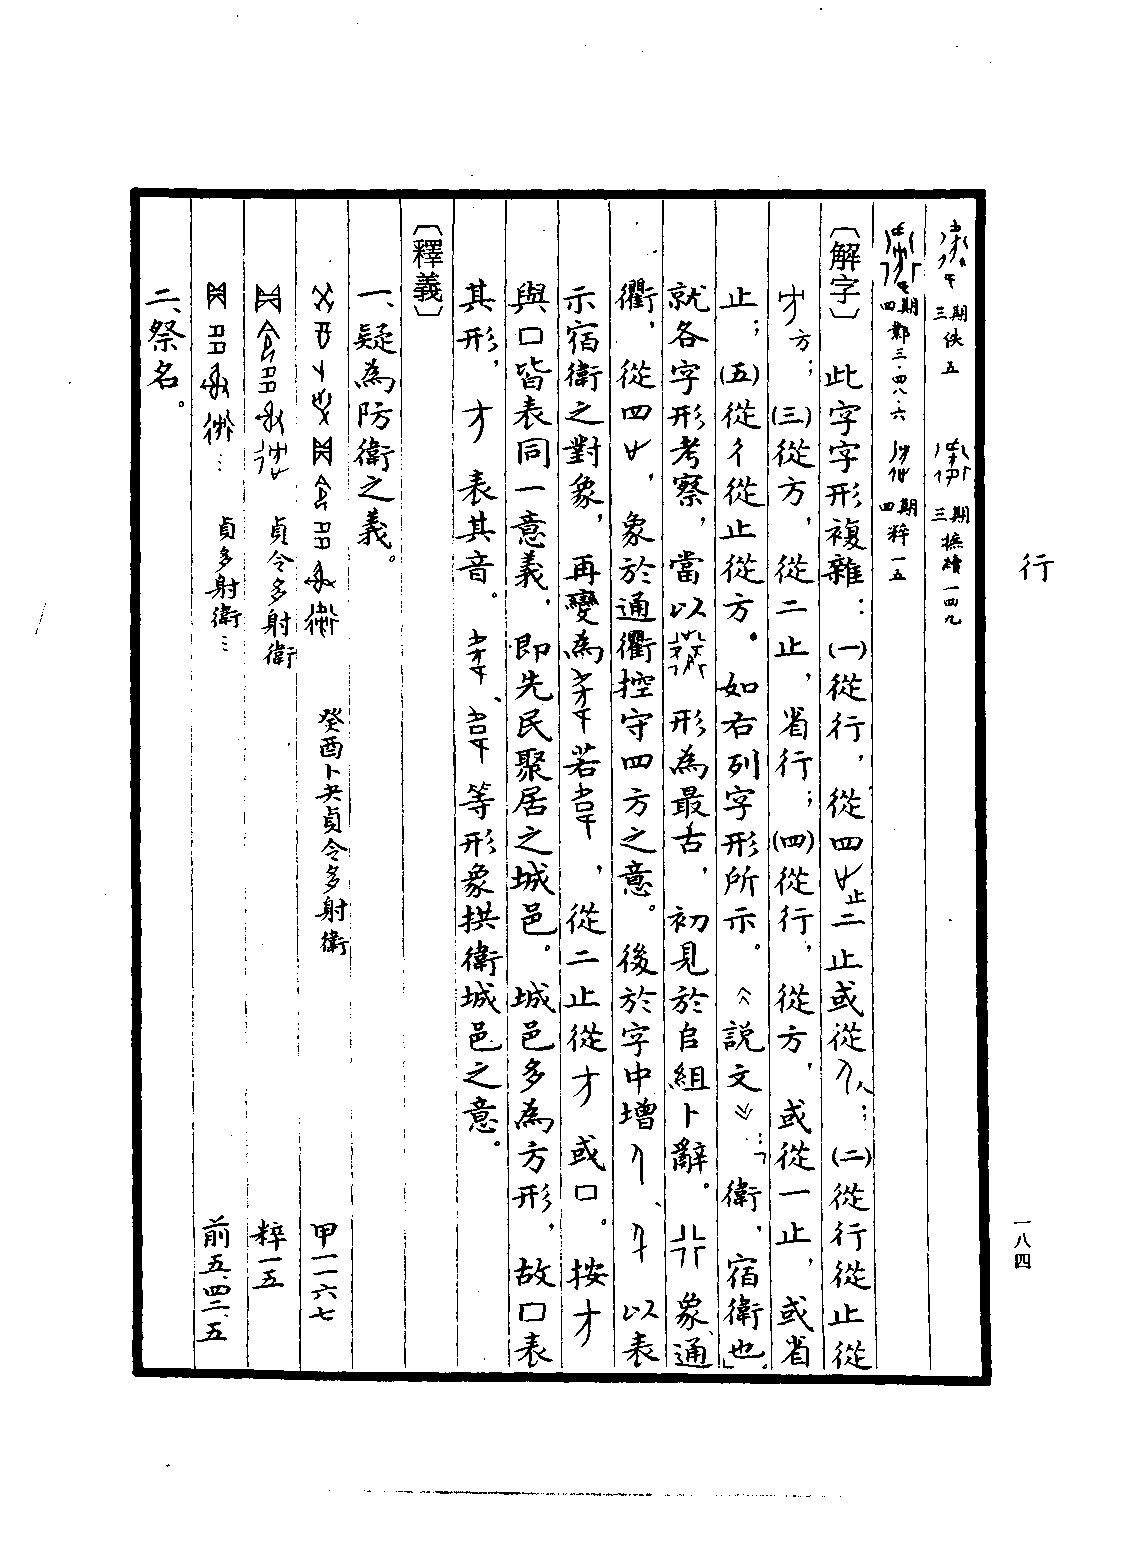 行
一八四
三期 佚五
三期 摭續一四九
四期 鄴三·四八·六
四期 粹一五
〔解字〕 此字字形複雜：(一)從行，從四止二止或從人；(二)從行從止從
方；(三)從方，從二止，省行；(四)從行，從方，或從一止，或省
止；(五)從彳從止從方。如右列字形所示。《說文》：「衛，宿衛也」。
就各字形考察，當以 形為最古，初見於𠂤組卜辭。 象通
衢，從四 ，象於通衢控守四方之意。後於字中增 、 以表
示宿衛之對象，再變為 若 ，從二止從 或口。按
與口皆表同一意義，即先民聚居之城邑。城邑多為方形，故口表
其形， 表其音。 、 等形象拱衛城邑之意。
〔釋義〕
一、疑為防衛之義。
癸酉卜 貞令多射衛 甲一一六七
貞令多射衛 粹一五
貞多射衛… 前五、四二、五
二、祭名。